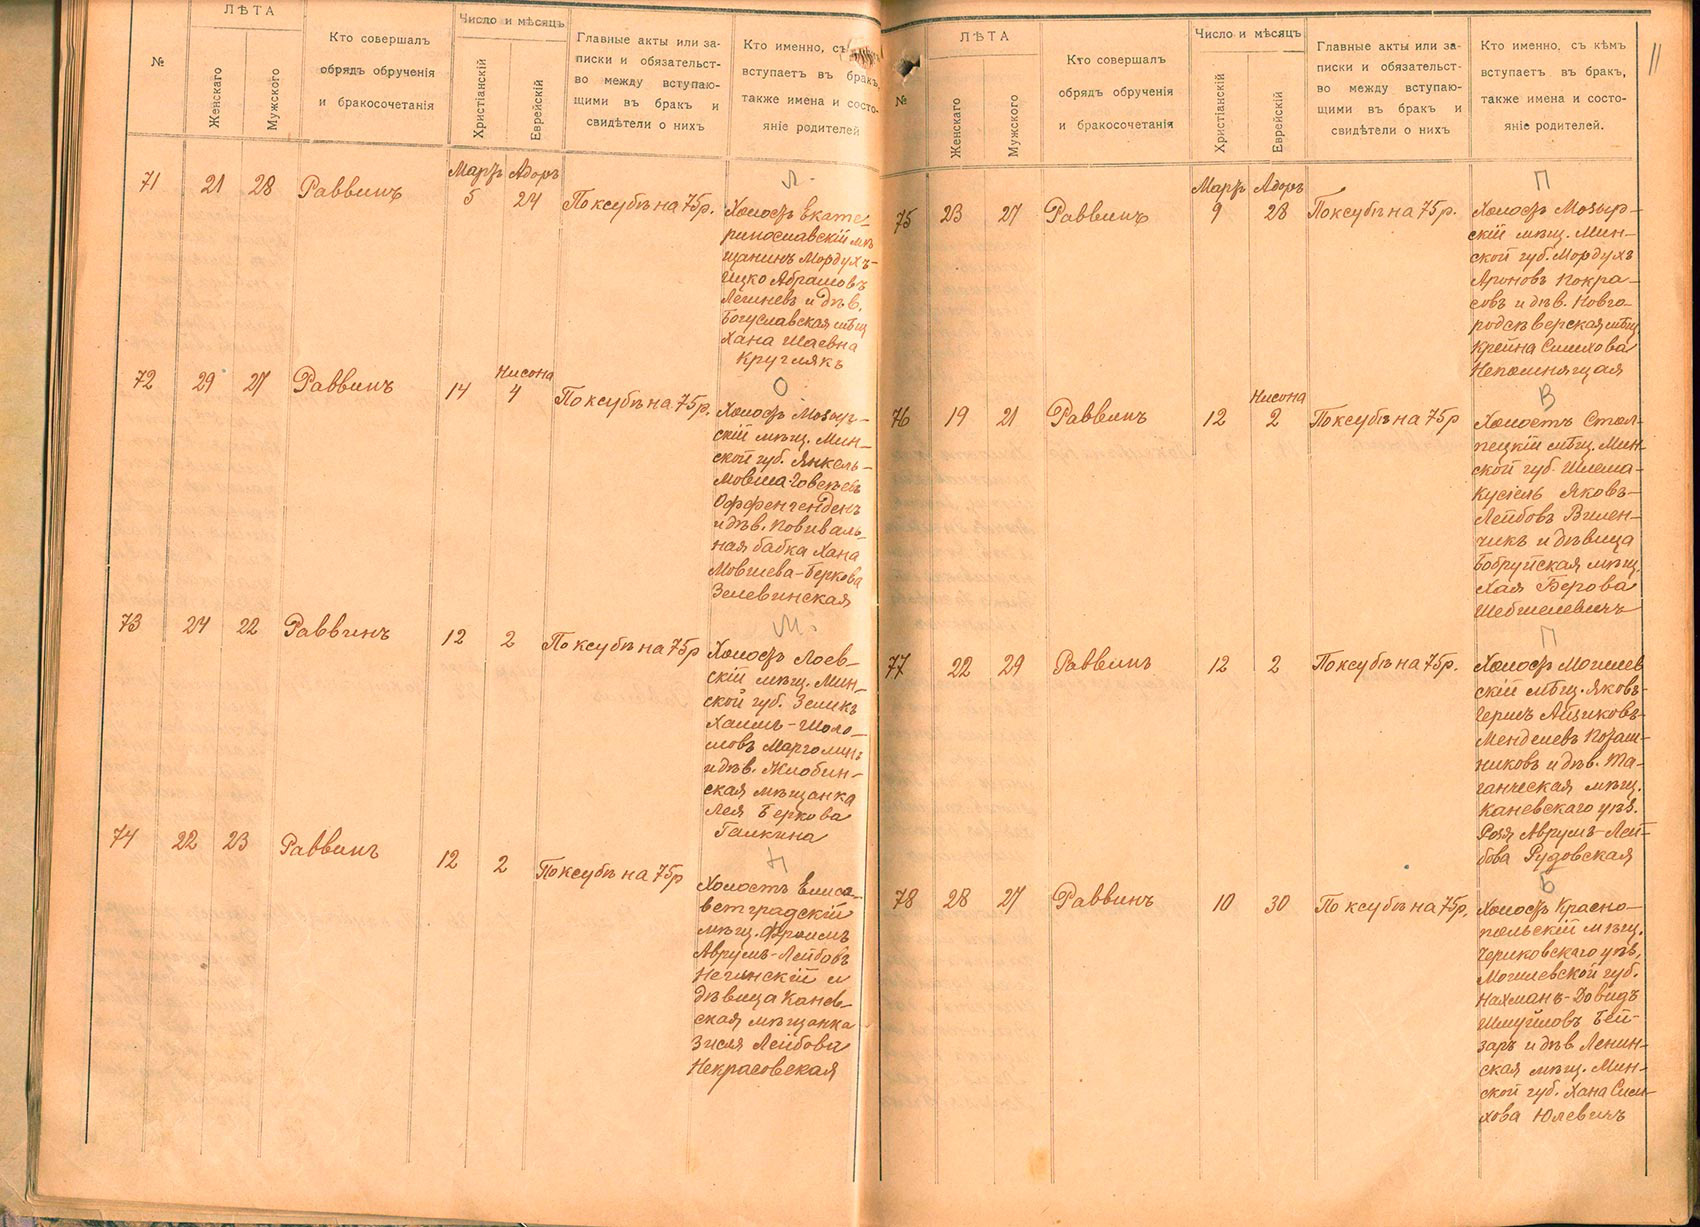 №
ЛѢТА
Женскаго
Мужского
Кто совершалъ
обрядъ обрученія
и бракосочетанія
Число и мѣсяцъ
Христіанскій
Еврейскій
Главные акты или за-
писки и обязательст-
во между вступаю-
щими въ бракъ и
свидѣтели о нихъ
Кто именно, съ кѣмъ
вступаетъ въ бракъ,
также имена и состо-
яніе родителей
71
21
28
Раввинъ
Мартъ
5
Адоръ
24
По ксубѣ на 75р.
Л.
Холостъ Екате-
ринославскій мѣ
щанинъ Мордухъ-
Ицко Абрамовъ
и дѣв.
Богуславская мѣщ
Хана Шаевна
Круглякъ
72
29
27
Раввинъ
14
Нисона
4
По ксубѣ на 75р.
О
Холостъ Мозыр-
скій мѣщ. Мин-
ской губ. Янкель-
Мовша-Іовсѣевъ
Оффенгенденъ
и дѣв. Повиваль-
ная бабка Хана
Мовшева-Беркова
Зелевинская
73
24
22
Раввинъ
12
2
По ксубѣ на 75р
М.
Холостъ Лоев-
скій мѣщ. Мин-
ской губ. Зеликъ
Хаимъ-Шоло-
мовъ Марголинъ
и дѣв. Жлобин-
ская мѣщанка
Лея Беркова
Галкина
74
22
23
Раввинъ
12
2
По ксубѣ на 75р
Н
Холостъ Елиса-
ветградскій
мѣщ. Фроимъ
Аврумъ-Лейбовъ
Нежинскій и
дѣвица Канев-
ская мѣщанка
Зисля Лейбова
Некрасовская
11
№
ЛѢТА
Женскаго
Мужского
Кто совершалъ
обрядъ обрученія
и бракосочетанія
Число и мѣсяцъ
Христіанскій
Еврейскій
Главные акты или за-
писки и обязательст-
во между вступаю-
щими въ бракъ и
свидѣтели о нихъ
Кто именно, съ кѣмъ
вступаетъ въ бракъ,
также имена и состо-
яніе родителей.
75
23
27
Раввинъ
Мартъ
9
Адоръ
28
По ксубѣ на 75р.
П
Холостъ Мозыр-
скій мѣщ. Мин-
ской губ. Мордухъ
Ароновъ Покра-
совъ и дѣв. Новго-
родсѣверская мѣщ
Крейна Симхова
Непомнящая
76
19
21
Раввинъ
12
Нисона
2
По ксубѣ на 75р
В
Холостъ Стол-
пецкій мѣщ. Мин-
ской губ. Шлема-
Кусіель Яковъ-
Лейбовъ Вилен-
чикъ и дѣвица
Бобруйская мѣщ.
Хая Берова
Шебшелевичъ
77
22
29
Раввинъ
12
2
По ксубѣ на 75р.
П
Холостъ Могилев
скій мѣщ. Яковъ-
Гершъ Айзиковъ-
Менделевъ Позаш-
никовъ и дѣв. Та-
ганческая мѣщ.
Каневскаго уѣз.
Рояя Аврумъ-Лей-
бова Рудовская
78
28
27
Раввинъ
10
30
По ксубѣ на 75р.
Б
Холостъ Красно-
польскій мѣщ.
Чериковскаго уѣз,
Могилевской губ.
Нахманъ-Довидъ
Шмуйловъ Бей-
заръ и дѣв Ленин-
ская мѣщ. Мин-
ской губ. Хана Сим-
хова Юлевичъ